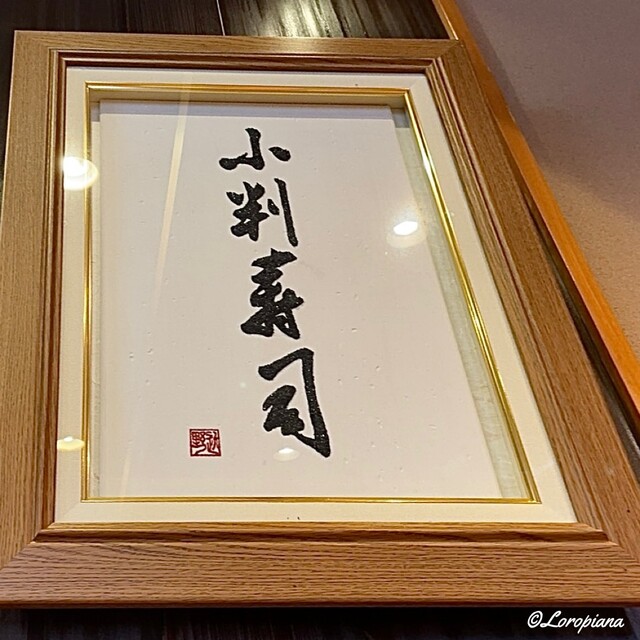 小判寿司
©Loropiana